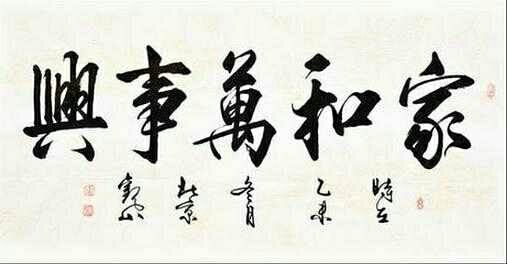 家和萬事興
時在乙未冬月於京